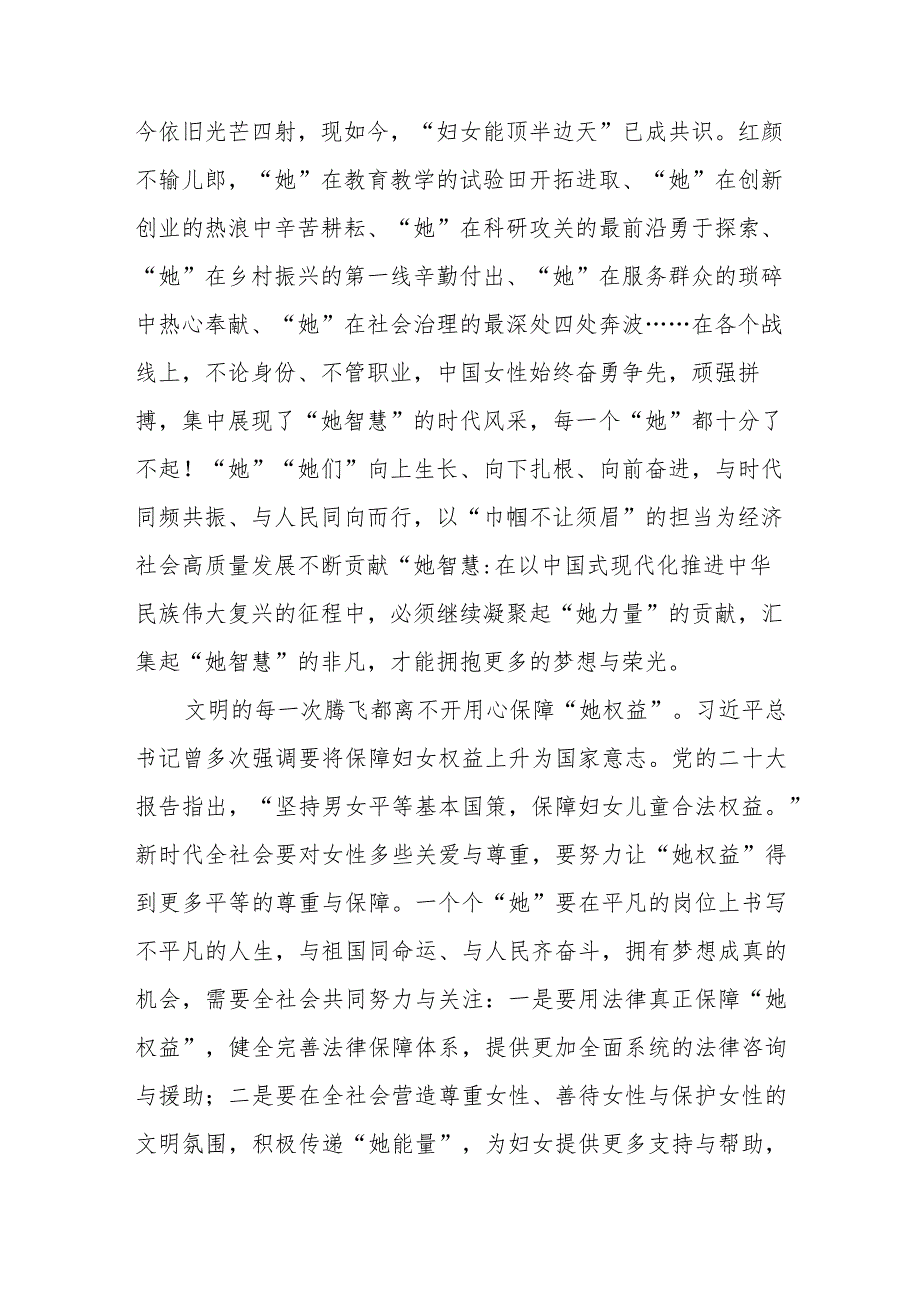 今依旧光芒四射，现如今，“妇女能顶半边天”已成共识。红颜
不输儿郎，“她”在教育教学的试验田开拓进取、“她”在创新
创业的热浪中辛苦耕耘、“她”在科研攻关的最前沿勇于探索、
“她”在乡村振兴的第一线辛勤付出、“她”在服务群众的琐碎
中热心奉献、“她”在社会治理的最深处四处奔波……在各个战
线上，不论身份、不管职业，中国女性始终奋勇争先，顽强拼
搏，集中展现了“她智慧”的时代风采，每一个“她”都十分了
不起！“她”“她们”向上生长、向下扎根、向前奋进，与时代
同频共振、与人民同向而行，以“巾帼不让须眉”的担当为经济
社会高质量发展不断贡献“她智慧:在以中国式现代化推进中华
民族伟大复兴的征程中，必须继续凝聚起“她力量”的贡献，汇
集起“她智慧”的非凡，才能拥抱更多的梦想与荣光。
文明的每一次腾飞都离不开用心保障“她权益”。习近平总
书记曾多次强调要将保障妇女权益上升为国家意志。党的二十大
报告指出，“坚持男女平等基本国策，保障妇女儿童合法权益。”
新时代全社会要对女性多些关爱与尊重，要努力让“她权益”得
到更多平等的尊重与保障。一个个“她”要在平凡的岗位上书写
不平凡的人生，与祖国同命运、与人民齐奋斗，拥有梦想成真的
机会，需要全社会共同努力与关注：一是要用法律真正保障“她
权益”，健全完善法律保障体系，提供更加全面系统的法律咨询
与援助；二是要在全社会营造尊重女性、善待女性与保护女性的
文明氛围，积极传递“她能量”，为妇女提供更多支持与帮助，